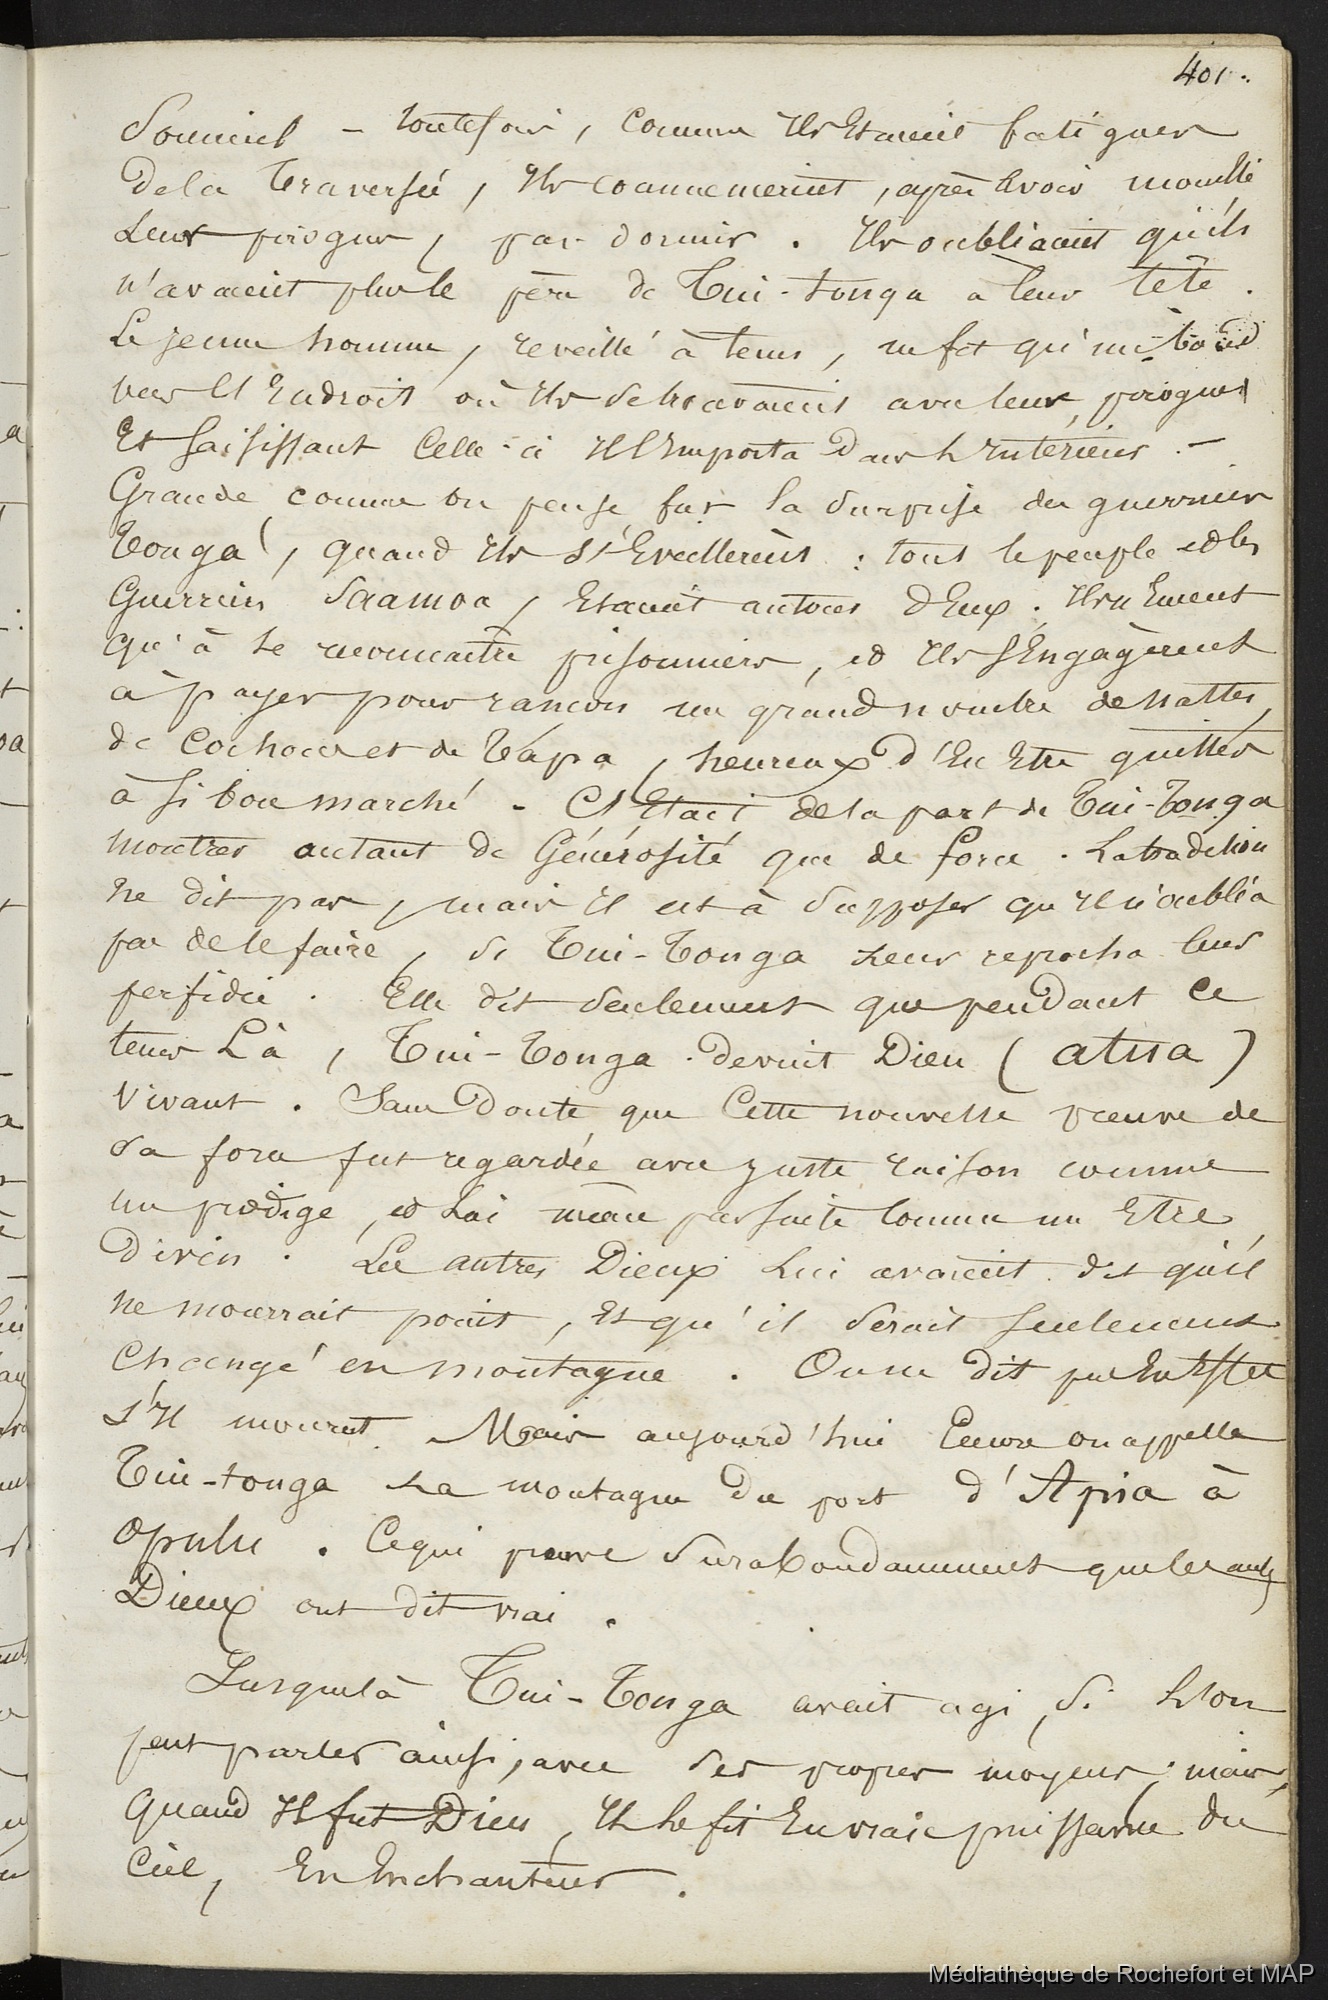 401.
Sommeil – toutefois, comme Ils Etaient fatigués
de la traversée, Ils commencerent, après Avoir mouillé
Leurs pirogues, par dormir. Ils oubliaient qu'ils
n'avaient plus le père de Tui-tonga à leur tête.
Le jeune homme, reveillé à tems, ne fit qu'un bond
vers l'Endroit où Ils se trouvaient avec leurs pirogues
Et saisissant Celle-ci Il l'Emporta dans l'Intérieur. –
Grande comme on pense fut la surprise des guerriers
Tonga, quand Ils s'Eveillerent : tout le peuple et les
Guerriers Saamoa, Etaient autour d'Eux. Ils n'Eurent
qu'à se reconnaitre prisonniers, et Ils s'Engagèrent
à payer pour rançon un grand nombre de nattes,
de Cochons et de Tapa, heureux d'En Etre quittes
à si bon marché. C'Etait de la part de Tui-Tonga
montrer autant de Générosité que de force. La tradition
ne dit pas, mais Il est à supposer qu'Il n'oublia
pas de le faire, si Tui-Tonga leur reprocha leur
perfidie. Elle dit seulement que pendant Ce
tems Là, Tui-Tonga devint Dieu (atua)
Vivant. Sans Doute que Cette nouvelle preuve de
sa force fut regardée avec juste raison comme
un prodige, et Lui même par suite Comme un Etre
Divin. Les autres Dieux Lui avaient dit qu'il
ne mourrait point, Et qu'il serait seulement
Changé en montagne. On ne dit pas En Effet
s'Il mourut. Mais aujourd'hui Encore on appelle
Tui-tonga La montagne du port d'Apia à
Opulu. Ce qui prouve surabondamment que les autres
Dieux ont dit vrai.
Jusque là Tui-Tonga avait agi, si L'on
peut parler ainsi, avec ses propres moyens ; mais,
Quand Il fut Dieu, Il le fit En vraie puissance du
Ciel, En Enchanteur.
Médiathèque de Rochefort et MAP